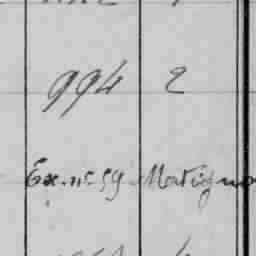 994 2
Ex. n° 59 Matigno